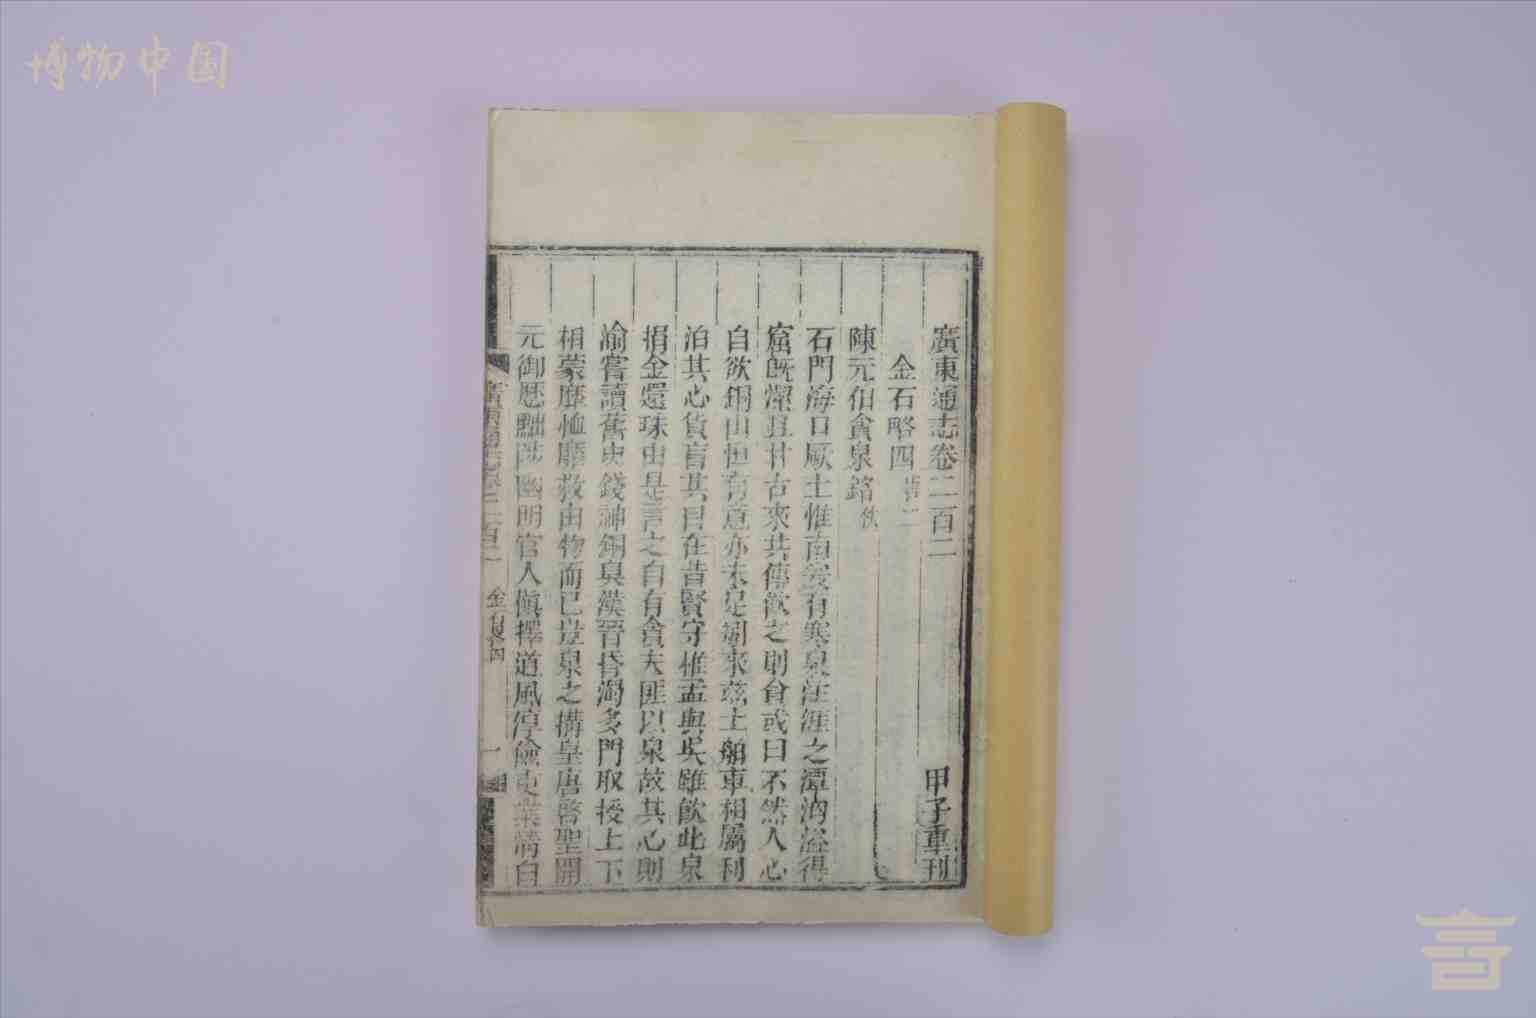 博物中国
廣東通志卷二百二 甲子重刊
金石略四
陳元伯貪泉銘佚
石門海口厥土惟南爰有寒泉汪涯之潭洶溢得
窟既潔且甘古來共傳飲之則貪或曰不然人心
自欲銅山恒有意亦未足別來茲土舶車相屬利
泊其心貨盲其目在昔賢守惟孟與吳雖飲此泉
捐金還珠由是言之自有貪夫匪以泉故其心則
渝嘗讀舊史錢神銅臭漢晉昏濁多門取授上下
相蒙靡恤廉救由物而已豈泉之搆皇唐啓聖開
元御歷黜陟幽明官人慎擇道風淳儉吏業清白
廣東通志卷二百二 金石略四 一